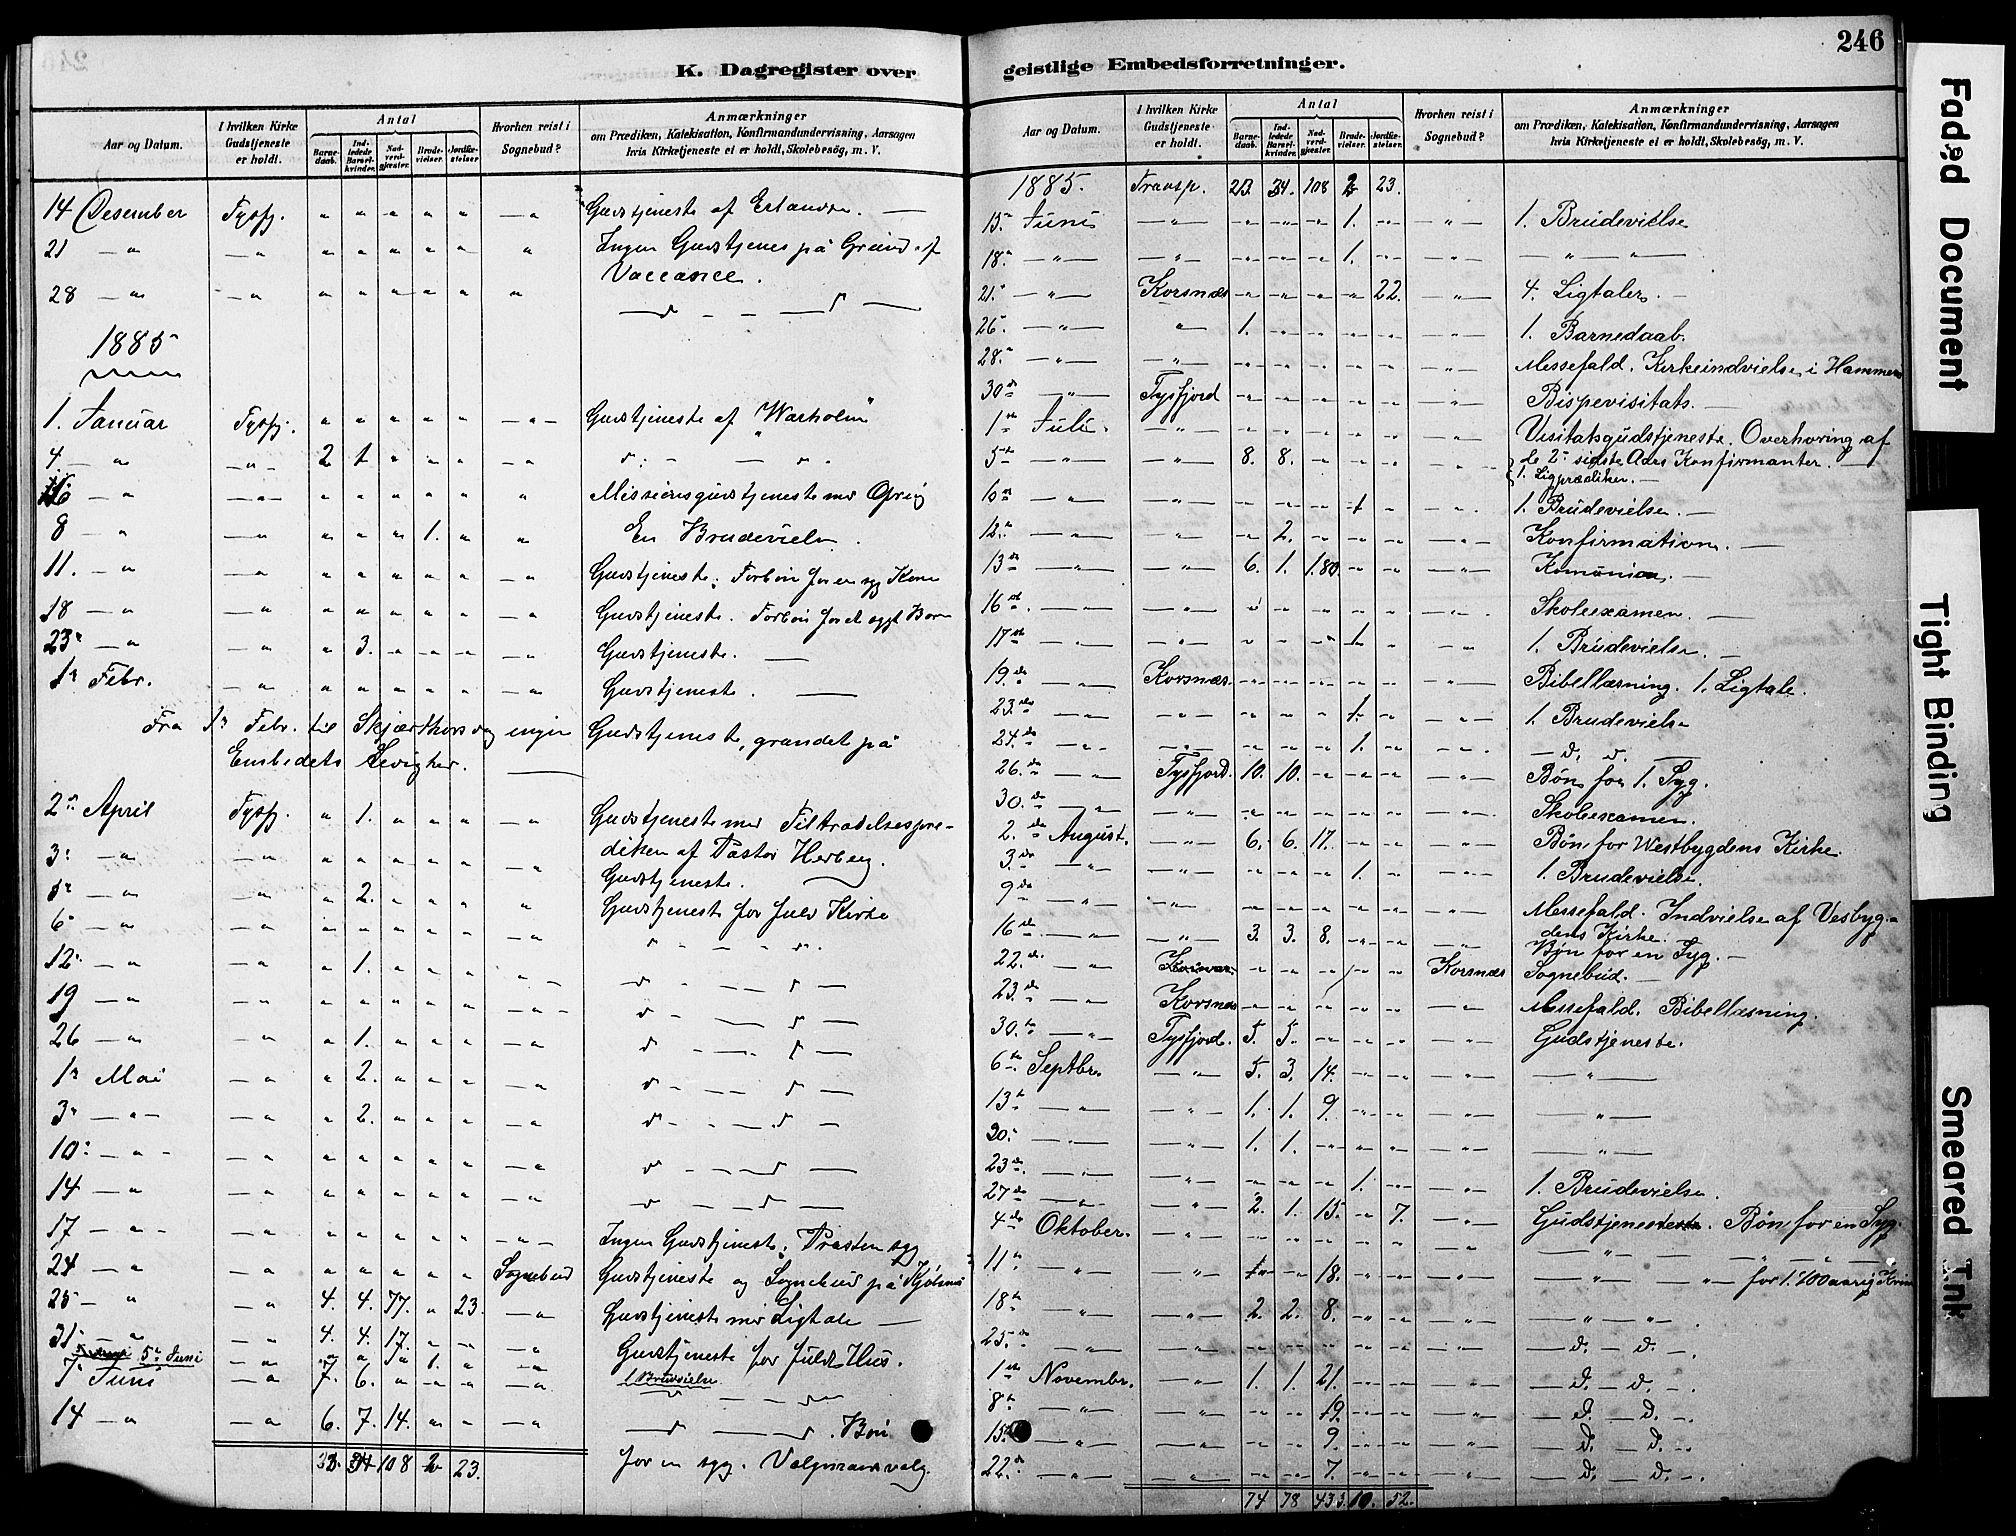 246
K. Dagregister over
geistlige Embedsforretninger.
Aar og Datum.
I hvilken Kirke Gudstjeneste er holdt.
Antal
Barne-daab.
Ind-ledede Barsel-kvinder.
Nad-verd-gjæster.
Brude-vielser.
Jordfæ-stelser.
Hvorhen reist i Sognebud?
Anmærkninger
om Prædiken, Katekisation, Konfirmandundervisning, Aarsagen
hvis Kirketjeneste ei er holdt, Skolebesög, m. V.
14 Desember Tysfj. " " " " " — " Gudstjeneste af Erlandsen. —
21 — " — " " " " " " " Ingen Gudstjenes på Grund af
Vaccance.
28 — " — " " " " " " " — d — — d —
1885
1. Januar Tysfj. " " " " " — " — Gudstjeneste af "Warholm"
4 — " — " — 2 1 " " " — " d: — — d.
6 — " — " — " " " " " " Missionsgudstjeneste med Ofring
8 " — " " " " 1. " " En Brudevielse.
11. — " — " " " " " " — " Gudstjeneste. Forbön for en syg Kone
18 — " — " " " " " " — " Gudstjeneste. Forbön for et sygt Barn
23 — " — " " 3. " " " — " Gudstjeneste. —
1 Febr. — " " " " " " — " Gudstjeneste. —
Fra 1 Febr. til Skjærthorsdag ingen Gudstjeneste, grundet på
Embedets Ledighed. —
2 April Tysfj. " 1. " " " — " Gudstjeneste med Tiltrædelsespræ-
3 — " — " " " " " " — " diken af Pastor Herberg.
Gudstjeneste.
5 — " — " " 2. " " " " Gudstjeneste for fuld Kirke
6 — " — " " " " " " — " d — — d.
12 — " — " " 1. " " " — " — d — — d —
19 — " — " " " " " " — " — d — — d —
26 — " — " " 1. " " " — " d — — d —
1 Mai — " " 2. " " " — " d — — d —
3 — " — — " " 2. " " " — " d — — d
10 — " — — " " " " " " — " d — — d —
14 — " — " " " " " " — " d — — d —
17 — " — — " " " " " " — " — Ingen Gudstjeneste, Præsten syg
24 — " — " " " " " " Sognebud Gudstjeneste og Sognebud på
25 — " — " 4. 4. 77. " 23. — " Gudstjeneste med Ligtale —
31 — " — " 4. 4. 17. " — — " Gudstjeneste for fuldt Hus.
5 Juni — " " " " 1. " — " 1 Brudevielse
7 Juni — " 7. 6. " — " — " — d — — d —
14 — " — " 6. 7. 14. " " — " — d — — d. Bön
108 2 23. for en syg. Valgmandsvalg.
Aar og Datum.
I hvilken Kirke Gudstjeneste er holdt.
Antal
Barne-daab.
Ind-ledede Barsel-kvinder.
Nad-verd-gjæster.
Brude-vielser.
Jordfæ-stelser.
Hvorhen reist i Sognebud?
Anmærkninger
om Prædiken, Katekisation, Konfirmandundervisning, Aarsagen
hvis Kirketjeneste ei er holdt, Skolebesög, m. V.
1885. Transp. 34. 108 2 23.
15 Juni — " — 1. 1. Brudevielse
18. — " — — " — 1. — " —
21. — " — Korsnæs 22. 4. Ligtaler. —
26 — " — " 1. 1. Barnedaab.
28. — " — — " — Messefald. Kirkeindvielse i Hammerø
30 — " — Tysfjord Bispevisitats. —
1 Juli. — " — Visitatsgudstjeneste. Overhøring af
5 — " — — " — 8. 8. de 2 sidste Aars Konfirmanter. —
1. Ligprædiken. —
10 — " — — " — 1 1. Brudevielse. —
12. — " — — " — 2. Konfirmation. —
13 — " — — " — 6. 1. 1.80. Komunion. —
16 — " — — " — Skoleexamen. —
17 — " — — " — 1. 1. Brudevielse. —
19. — " — Korsnæs. Bibellæsning. 1. Ligtale.
23. — " — — " — 1. 1. Brudevielse
24. — " — — " — 1. — d. d. —
26. — " — Tysfjord. 10. 10. Bøn for 1. Syg.
30. — " — Skoleexamen.
2. August. — " — 6. 6. 17. Bøn for Westbygdens Kirke.
3. — " — — " — 1. 1. Brudevielse.
9 — " — — " — Messefald. Indvielse af Vesbyg-
dens Kirke.
16 — " — — " — 3. 3. 8. Bøn for en Syg. —
22. — " — Korsnæs Sognebud. —
23. — " — Korsnæs Messefald. Bibellæsning.
30. — " — Tysfjord. 5. 5. Gudstjeneste.
6 Septbr. — " — 5. 3. 14. — " —
13 — " — — " — 1. 1. 9. — " —
20. — " — — " — 1. 1. — " —
23 — " — — " — 1. 1. Brudevielse.
27 — " — — " — 2. 1. 15. 7. Gudstjeneste. Bøn for en Syg.
4 Oktober. — " — — " — — " —
11 — " — — " — 18. — " — — " — for 1. 100 aarig Kvinde
18 — " — — " — 2. 2. 8. — " — " —.
25. — " — — " — — d. — d. —.
1 Novembr. — " — 1. 1. 21. — d. — d. —.
8 — " — — " — 19. — d. — d. —.
15. — " — — " — 9. — d. — d. —
22. — " — — " — 7. — d. — d. —.
74 78 433. 10. 52.
Faded Document
Tight Binding
Smeared Ink